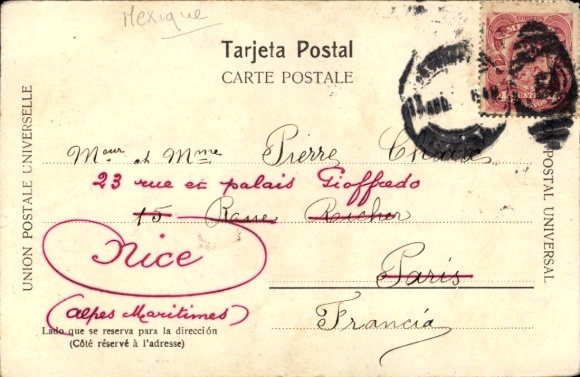 Mexique
Tarjeta Postal
CARTE POSTALE
UNION POSTALE UNIVERSELLE
POSTAL UNIVERSAL
Mour et Mme Pierre
23 rue et palais Gioffredo
15 Rue Richer
Nice
Paris
(Alpes Maritimes)
Francia
Lado que se reserva para la dirección
(Côté réservé à l'adresse)